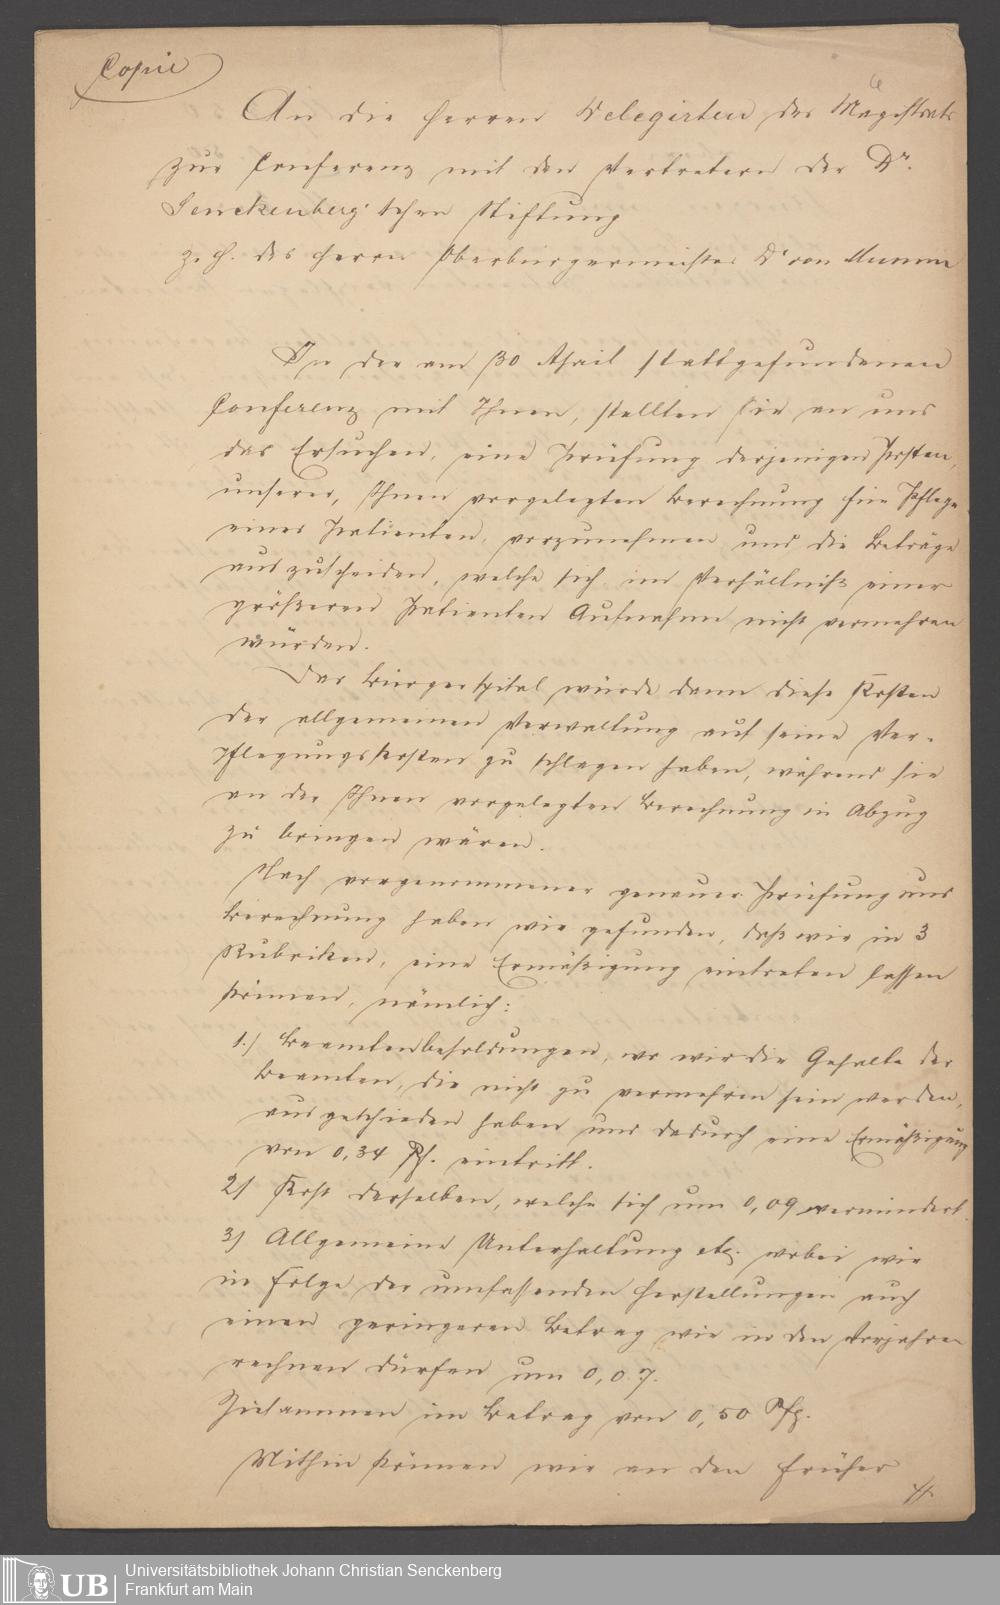 Copie
6
An die Herren Delegirten des Magistrats
zur Conferenz mit den Vertretern der Dr.
Senckenberg'schen Stiftung
z. H. des Herrn Oberbürgermeister Dr von Mumm
In der am 30 April stattgefundenen
Conferenz mit Ihnen, stellten Sie an uns
das Ersuchen, eine Prüfung derjenigen Posten,
unserer, Ihnen vorgelegten Berechnung für Pflege
eines Patienten, vorzunehmen und die Beträge
auszuscheiden, welche sich im Verhältniß einer
größeren Patienten Aufnahme nicht vermehren
würden.
Das Bürgerspital würde dann diese Kosten
der allgemeinen Verwaltung auf seine Ver-
pflegungskosten zu schlagen haben, während sie
an der Ihnen vorgelegten Berechnung in Abzug
zu bringen wären.
Nach vorgenommener genauer Prüfung und
Berechnung haben wir gefunden, daß wir in 3
Rubriken, eine Ermäßigung eintreten lassen
können, nämlich:
1.) Beamtenbesoldungen, wo wir die Gehalte der
Beamten, die nicht zu vermehren sein werden,
ausgeschieden haben und dadurch eine Ermäßigung
von 0,34 Pf. eintritt.
2) Kost derselben, welche sich um 0,09 vermindert.
3) Allgemeine Unterhaltung etz. wobei wir
in Folge der umfassenden Herstellungen auch
einen geringeren Betrag wie in den Vorjahren
rechnen dürfen um 0,07.
Zusammen im Betrag von 0,50 Pfg.
Mithin können wir an den früher
Universitätsbibliothek Johann Christian Senckenberg
Frankfurt am Main
UB